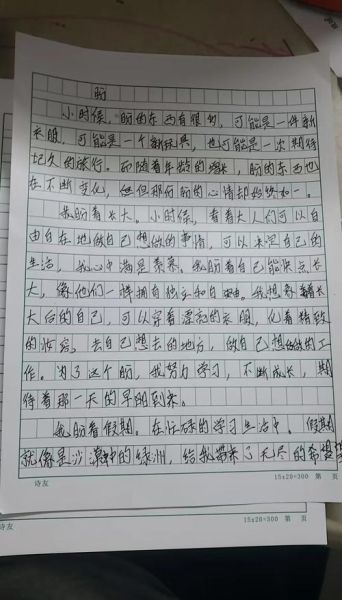 盼
小时候，盼的东西有很多，可能是一件新
衣服，可能是一个新玩具，也可能是一次期待
已久的旅行。而随着年龄的增长，盼的东西也
在不断变化，但但那份盼的心情却始终如一。
我盼着长大。小时候，看着大人们可以自
由自在地做自己想做的事情，可以决定自己的
生活，我心中满是羡慕。我盼着自己能快点长
大，像他们一样拥有独立和自由。我想象着长
大后的自己，可以穿着漂亮的衣服，化着精致
的妆容，去自己想去的地方，做自己想做的工
作。为了这个盼，我努力学习，不断成长，期
待着那一天的早日到来。
我盼着假期。在忙碌的学习生活中，假期
就像是沙漠中的绿洲，给我带来了无尽的希望
诗友
15x20=300 第 页
诗友
15x20=300 第 页